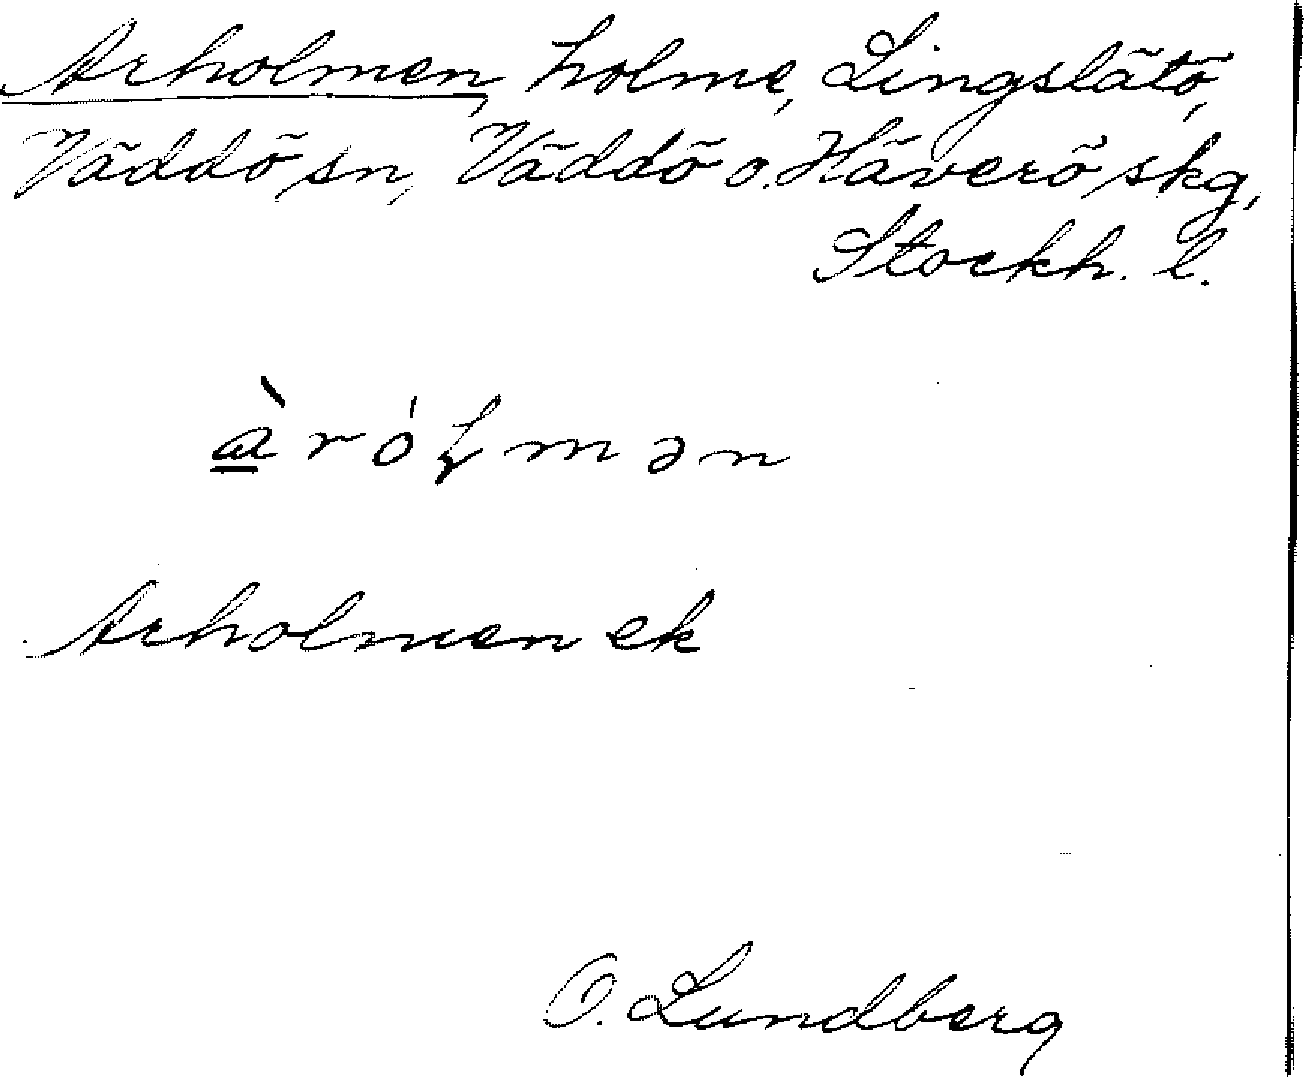 Arholmen, holme, Lingslätö,
Väddö sn, Väddö o. Häverö skg,
Stockh. l.
à̲róɫmən
Arholmen ek
O. Lundberg